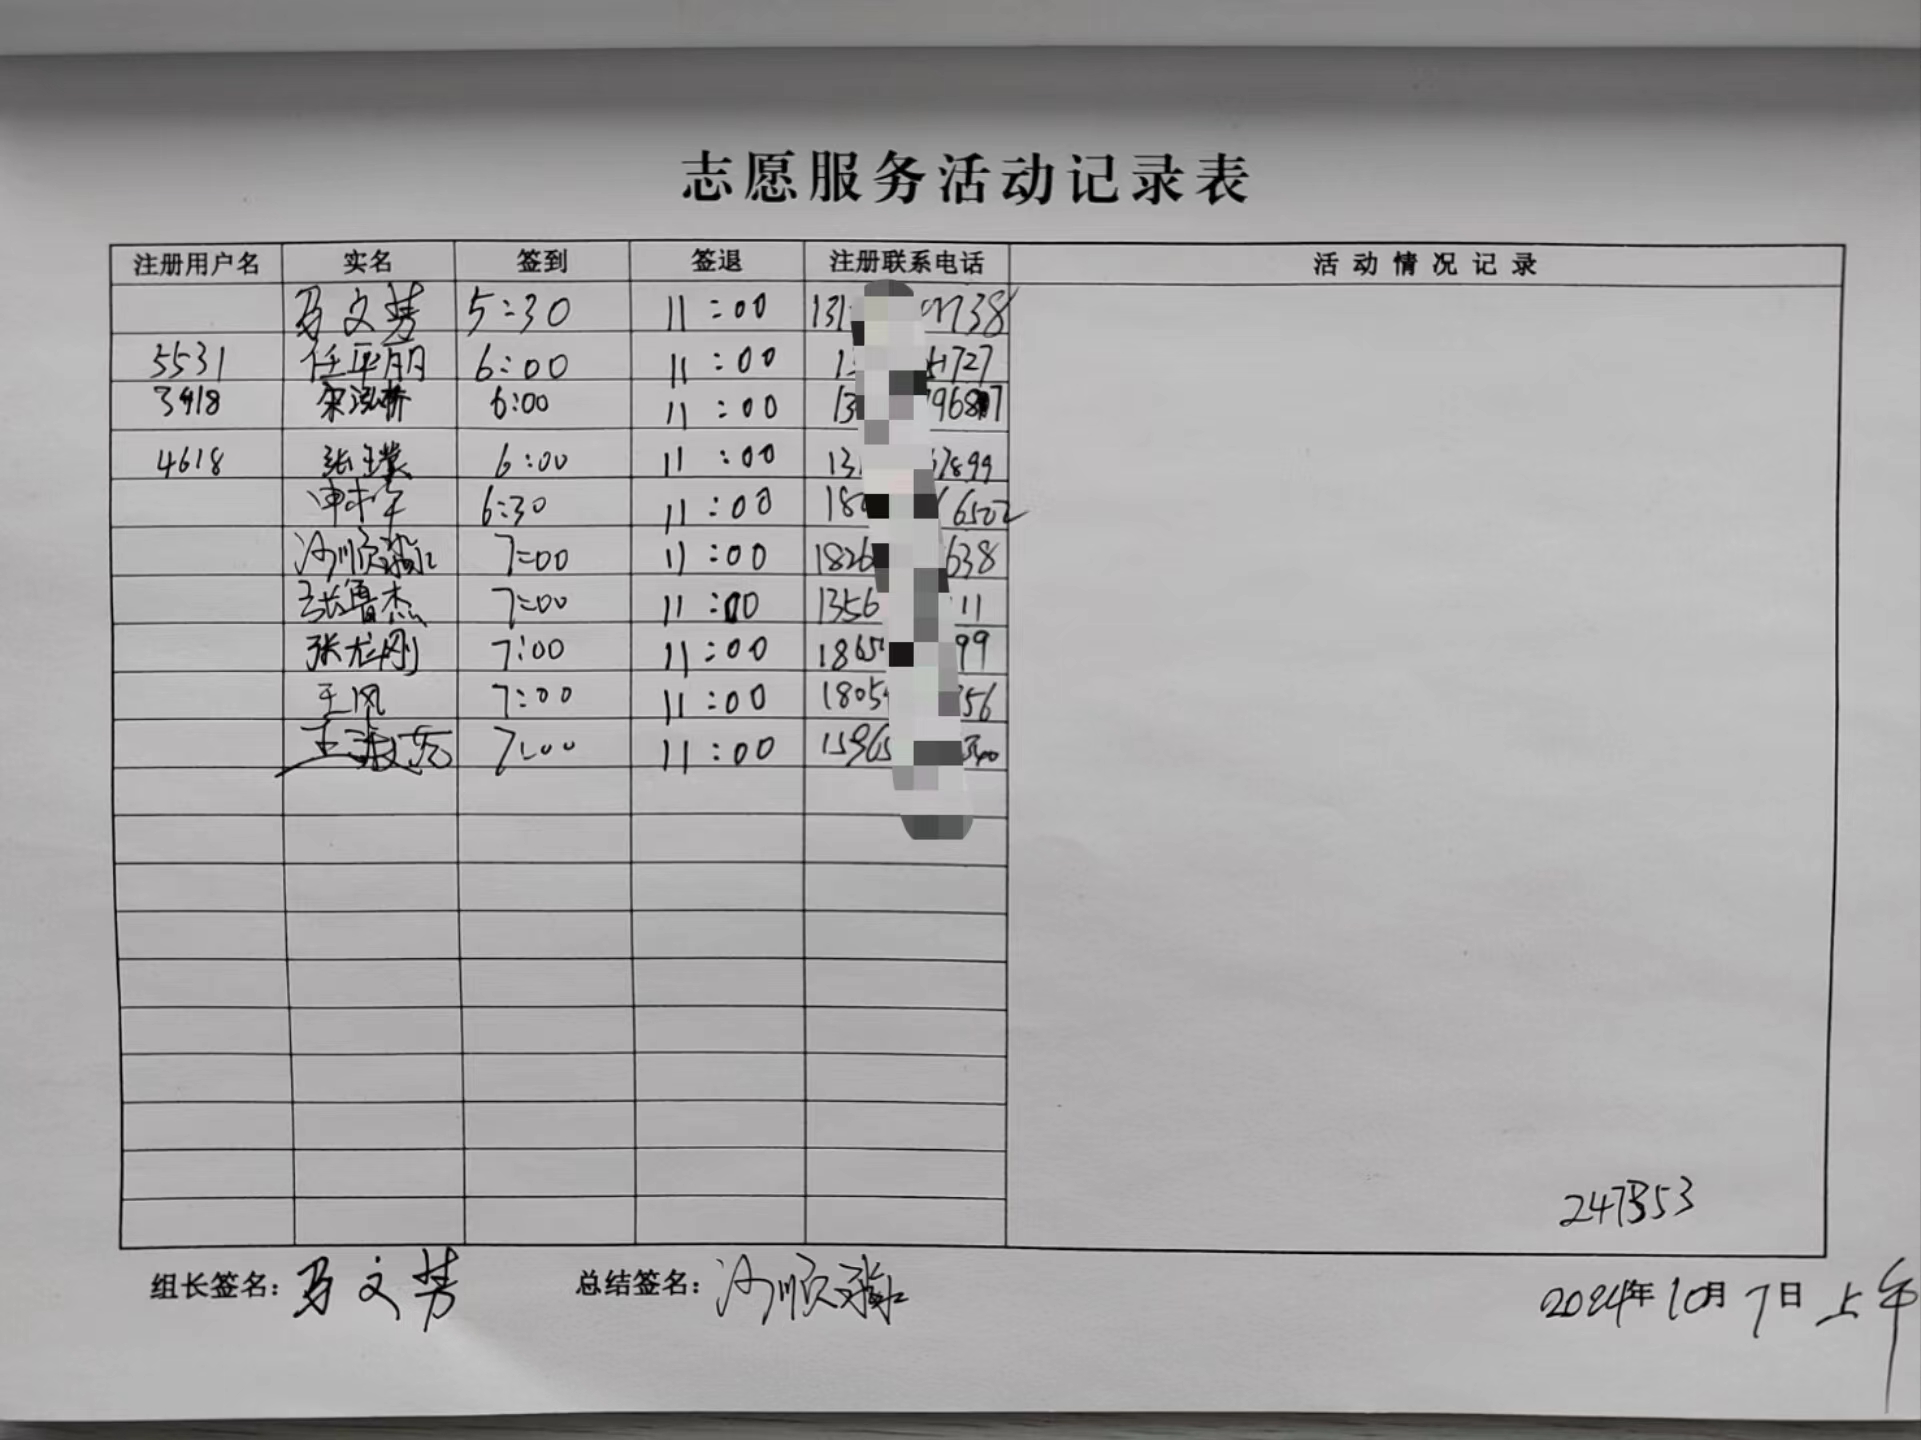 志愿服务活动记录表
注册用户名 实名 签到 签退 注册联系电话 活动情况记录
马文芳 5:30 11:00 131 38
5531 任平丽 6:00 11:00 1 1727
3418 宋泓桥 6:00 11:00 13 9687
4618 张 6:00 11:00 13 7899
申 6:30 11:00 18 6502
沙顺 7:00 11:00 1826 638
张鲁杰 7:00 11:00 1356 11
张龙刚 7:00 11:00 1865 99
王风 7:00 11:00 1805 356
王淑 7:00 11:00 1596 340
247353
组长签名：马文芳 总结签名：沙顺 2024年10月7日上午